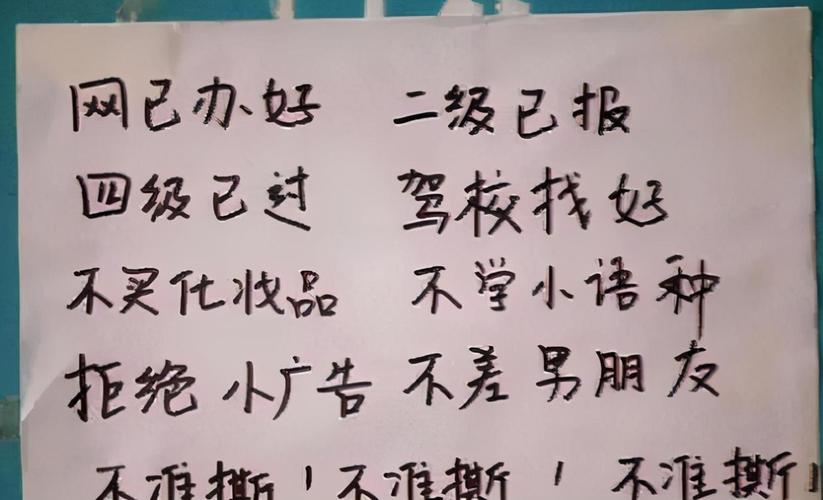 网已办好 二级已报
四级已过 驾校找好
不买化妆品 不学小语种
拒绝小广告 不差男朋友
不准撕！不准撕！不准撕！